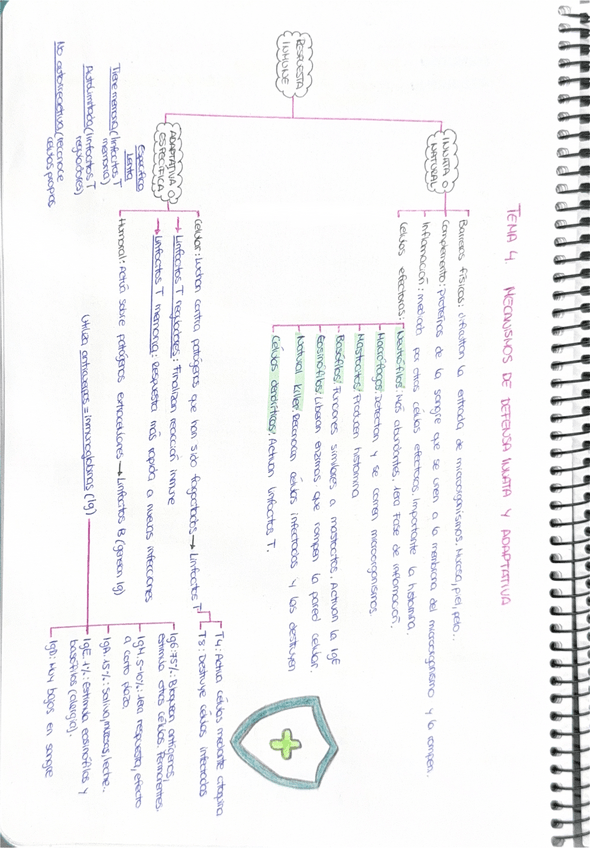 TEMA 4. MECANISMOS DE DEFENSA INNATA Y ADAPTATIVA
RESPUESTA
INMUNE
INNATA O
NATURAL
Barreras físicas: dificultan la entrada de microorganismos. Mucosa, piel, pelo...
Complemento: proteínas de la sangre que se unen a la membrana del microorganismo y la rompen.
Inflamación: mediada por otras células efectoras. Importante la histamina.
Células efectoras:
Neutrófilos: Más abundantes. 1era Fase de inflamación.
Macrófagos: Detectan y se comen microorganismos.
Mastocitos: Producen histamina
Basófilos: Funciones similares a mastocitos. Activan la IgE
Eosinófilos: Liberan enzimas que rompen la pared celular.
Natural killer: Reconocen células infectadas y las destruyen
Células dendríticas: Activan linfocitos T.
ADAPTATIVA O
ESPECÍFICA
Específica
Lenta
Tiene memoria (linfocitos T
memoria)
Autolimitada (linfocitos T
reguladores)
No autorreactiva (reconoce
células propias
Celular: Luchan contra patógenos que han sido fagocitados → Linfocitos T
T4: Activa células mediante citoquina
T8: Destruye células infectadas
→ Linfocitos T reguladores: Finalizan reacción inmune
→ Linfocitos T memoria: respuesta más rápida a nuevas infecciones
Humoral: Actúa sobre patógenos extracelulares → Linfocitos B (generan Ig)
Utiliza anticuerpos = inmunoglobinas (Ig)
IgG: 75%: Bloquean antígenos,
estimula otras células. Permanentes.
IgM: 5-10%: 1era respuesta, efecto
a corto plazo.
IgA: 15%: Saliva, mucosas, leche.
IgE: 1%: Estimula eosinófilos y
basófilos (alergia).
IgD: Muy bajos en sangre